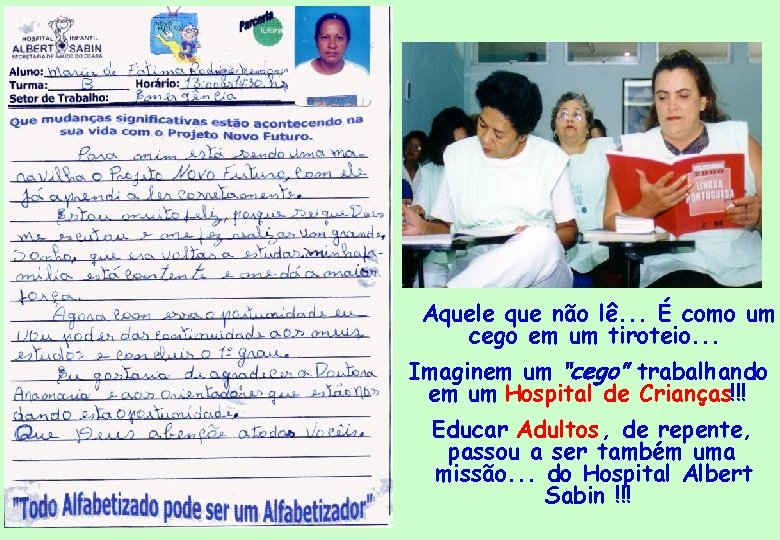 HOSPITAL INFANTIL
ALBERT SABIN
SECRETARIA DE SAÚDE DO CEARÁ
Parceria
Aluno: Maria de Fátima Rodrigues
Turma: B Horário:
Setor de Trabalho: Emergência
Que mudanças significativas estão acontecendo na
sua vida com o Projeto Novo Futuro.
Para mim está sendo uma ma-
ravilha o Projeto Novo Futuro, com ele
já aprendi a ler corretamente.
Estou muito feliz, porque sei que Deus
me escutou e me fez realizar um grande
sonho, que era voltar a estudar, minha fa-
mília está contente e me dá a maior
força.
Agora com essa oportunidade eu
vou poder dar continuidade aos meus
estudos e concluir o 1º grau.
Eu gostaria de agradecer a Doutora
Anamaria e aos orientadores que estão nos
dando esta oportunidade.
Que Deus abençõe a todos vocêis.
"Todo Alfabetizado pode ser um Alfabetizador"
TELECURSO
2000
LÍNGUA
PORTUGUESA
Aquele que não lê... É como um
cego em um tiroteio...
Imaginem um "cego" trabalhando
em um Hospital de Crianças!!!
Educar Adultos, de repente,
passou a ser também uma
missão... do Hospital Albert
Sabin !!!